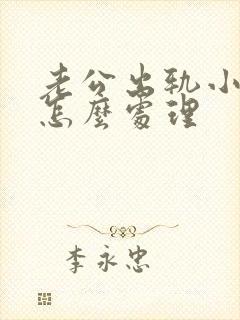 老公出轨小
怎麼處理
李永忠